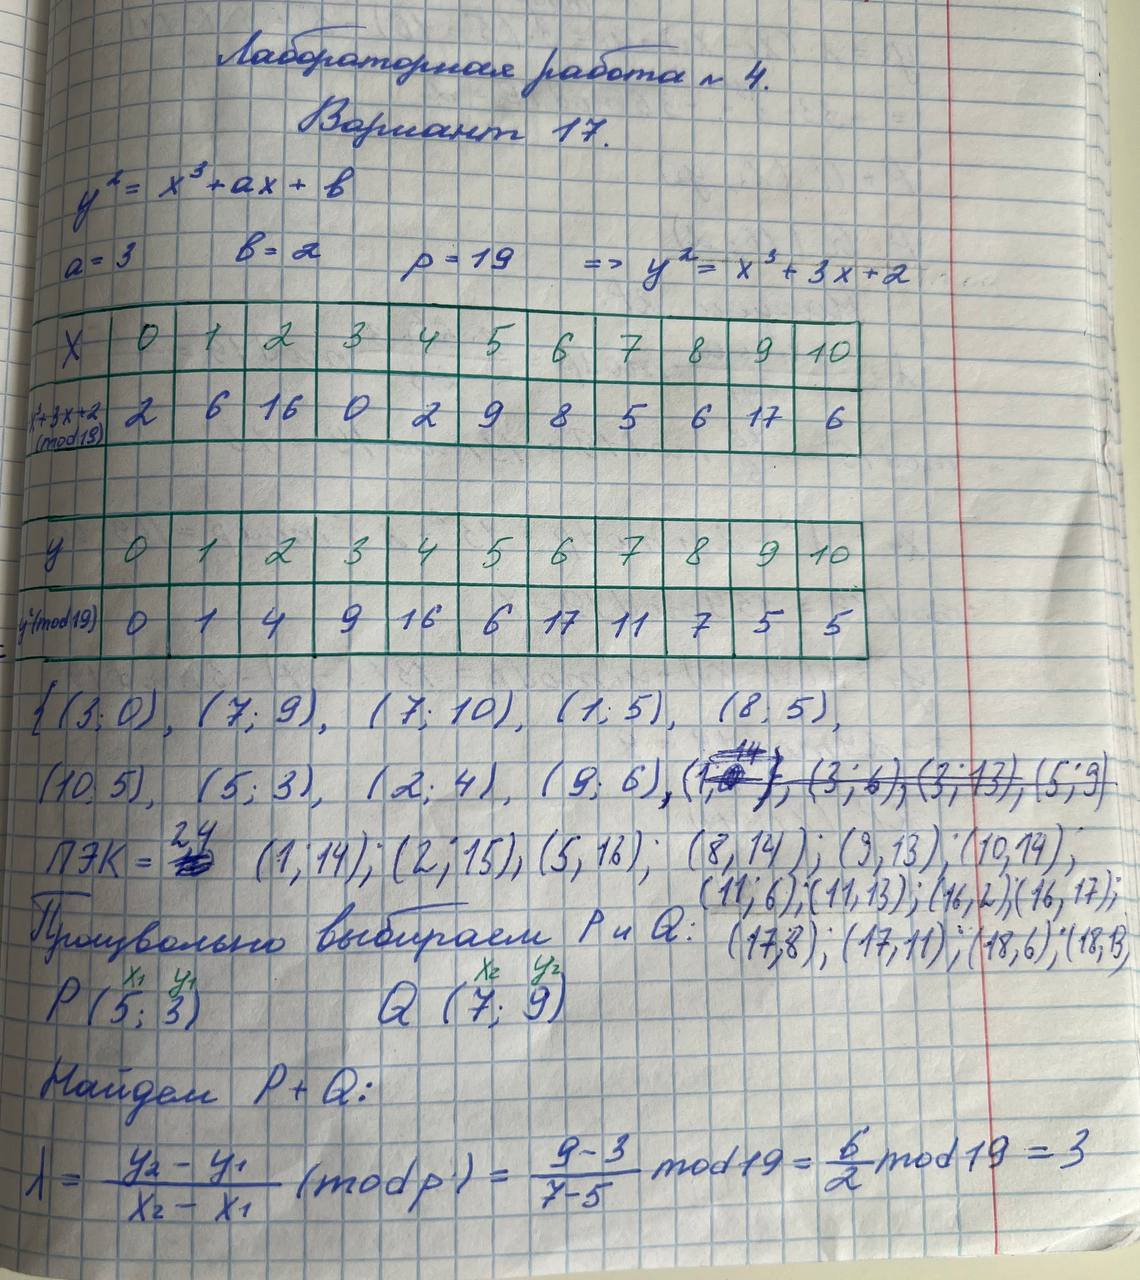 Лабораторная работа № 4.
Вариант 17.
y² = x³ + ax + b
a = 3 b = 2 p = 19 => y² = x³ + 3x + 2
X 0 1 2 3 4 5 6 7 8 9 10
x³+3x+2 (mod19) 2 6 16 0 2 9 8 5 6 17 6
y 0 1 2 3 4 5 6 7 8 9 10
y²(mod19) 0 1 4 9 16 6 17 11 7 5 5
{(3; 0), (7; 9), (7; 10), (1; 5), (8; 5),
(10; 5), (5; 3), (2; 4), (9; 6), (1; 14), (3; 6), (3; 13), (5; 9)
ПЭК = 24 (1; 14); (2; 15), (5, 16); (8, 14); (9, 13); (10, 14);
(11; 6); (11, 13); (16, 2); (16, 17);
Произвольно выбираем P и Q: (17,8); (17,11); (18,6); (18,13)
x₁ y₁ x₂ y₂
P (5; 3) Q (7; 9)
Найдем P + Q:
λ = (y₂ - y₁)/(x₂ - x₁) (mod p) = (9-3)/(7-5) mod 19 = 6/2 mod 19 = 3